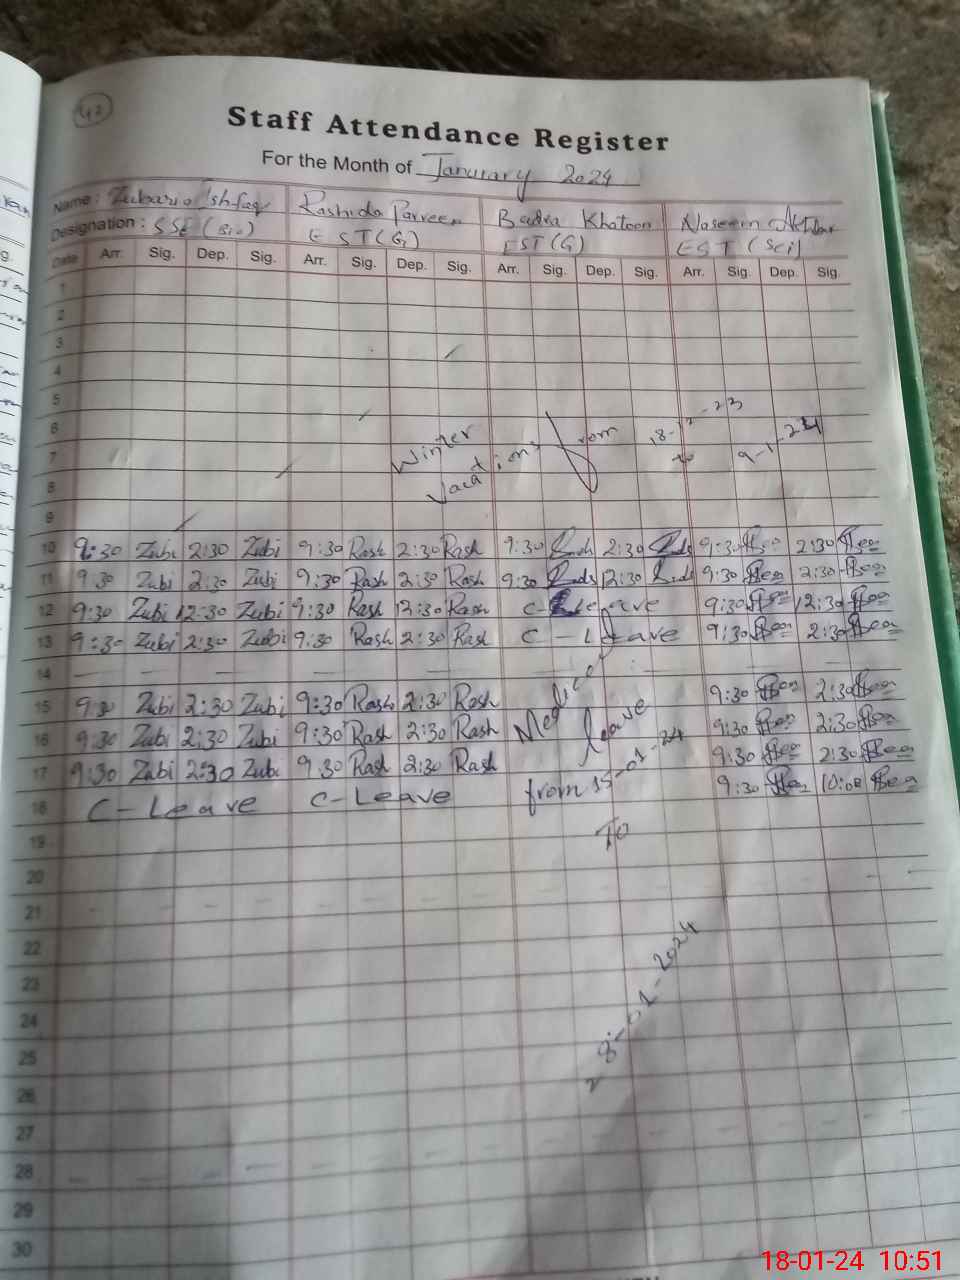 42
Staff Attendance Register
For the Month of January 2024
Name : Ishfaq Rashida Parveen Badra Khatoon Naseem Akhtar
Designation : SSE (Bio) EST (G) EST (G) EST (Sci)
Date Arr. Sig. Dep. Sig. Arr. Sig. Dep. Sig. Arr. Sig. Dep. Sig. Arr. Sig. Dep. Sig.
1
2
3
4
5
6
7
8
9
Winter
Vacations from 18-12-23
to 9-1-24
10 9:30 Zubi 2:30 Zubi 9:30 Rash 2:30 Rash 9:30 2:30 9:30 2:30
11 9:30 Zubi 2:30 Zubi 9:30 Rash 2:30 Rash 9:30 12:30 9:30 2:30
12 9:30 Zubi 12:30 Zubi 9:30 Rash 12:30 Rash C-Leave 9:30 12:30
13 9:30 Zubi 2:30 Zubi 9:30 Rash 2:30 Rash C-Leave 9:30 2:30
14
15 9:30 Zubi 2:30 Zubi 9:30 Rash 2:30 Rash 9:30 2:30
16 9:30 Zubi 2:30 Zubi 9:30 Rash 2:30 Rash 9:30 2:30
17 9:30 Zubi 2:30 Zubi 9:30 Rash 2:30 Rash 9:30 2:30
18 C-Leave C-Leave 9:30 10:00
Medical
leave
from 15-01-24
To
28-01-2024
19
20
21
22
23
24
25
26
27
28
29
30
18-01-24 10:51